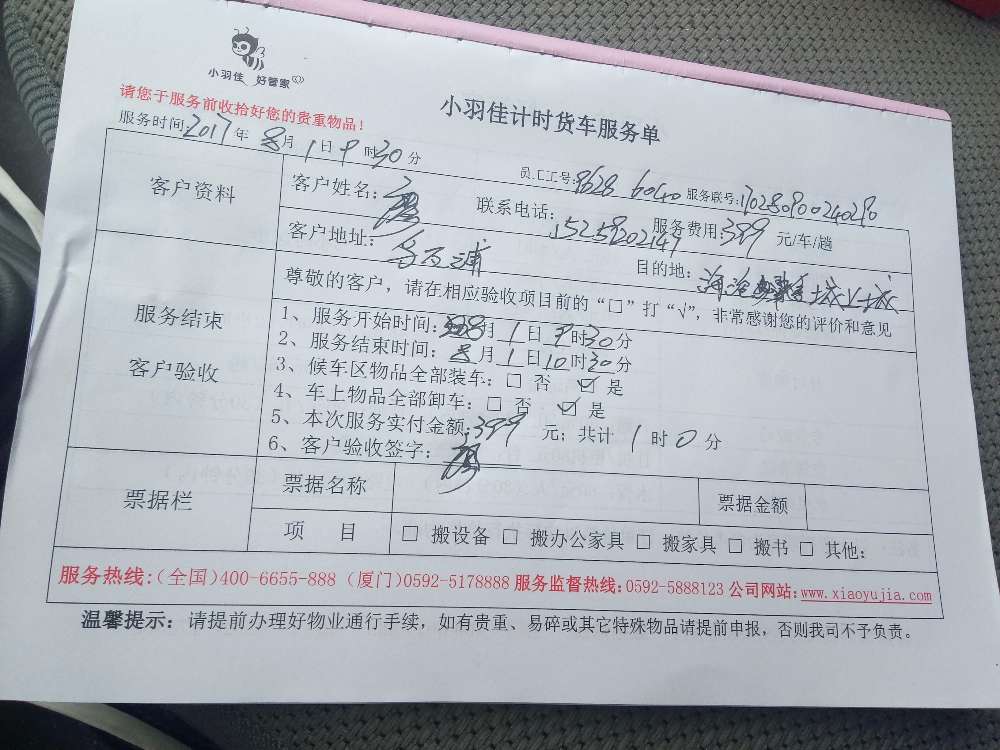 小羽佳 好管家
请您于服务前收拾好您的贵重物品！
小羽佳计时货车服务单
服务时间：2017年8月1日9时30分
员工工号：9628 6040 服务联号：
客户资料
客户姓名：
联系电话：15259202147
服务费用：399元/车/趟
客户地址：
目的地：
服务结束
客户验收
尊敬的客户，请在相应验收项目前的“□”打“√”，非常感谢您的评价和意见
1、服务开始时间：8月1日9时30分
2、服务结束时间：8月1日10时30分
3、候车区物品全部装车：□ 否 ☑ 是
4、车上物品全部卸车：□ 否 ☑ 是
5、本次服务实付金额：399 元；共计 1 时 0 分
6、客户验收签字：
票据栏
票据名称
票据金额
项 目
□ 搬设备 □ 搬办公家具 □ 搬家具 □ 搬书 □ 其他：
服务热线：（全国）400-6655-888（厦门）0592-5178888 服务监督热线：0592-5888123 公司网站：www.xiaoyujia.com
温馨提示：请提前办理好物业通行手续，如有贵重、易碎或其它特殊物品请提前申报，否则我司不予负责。